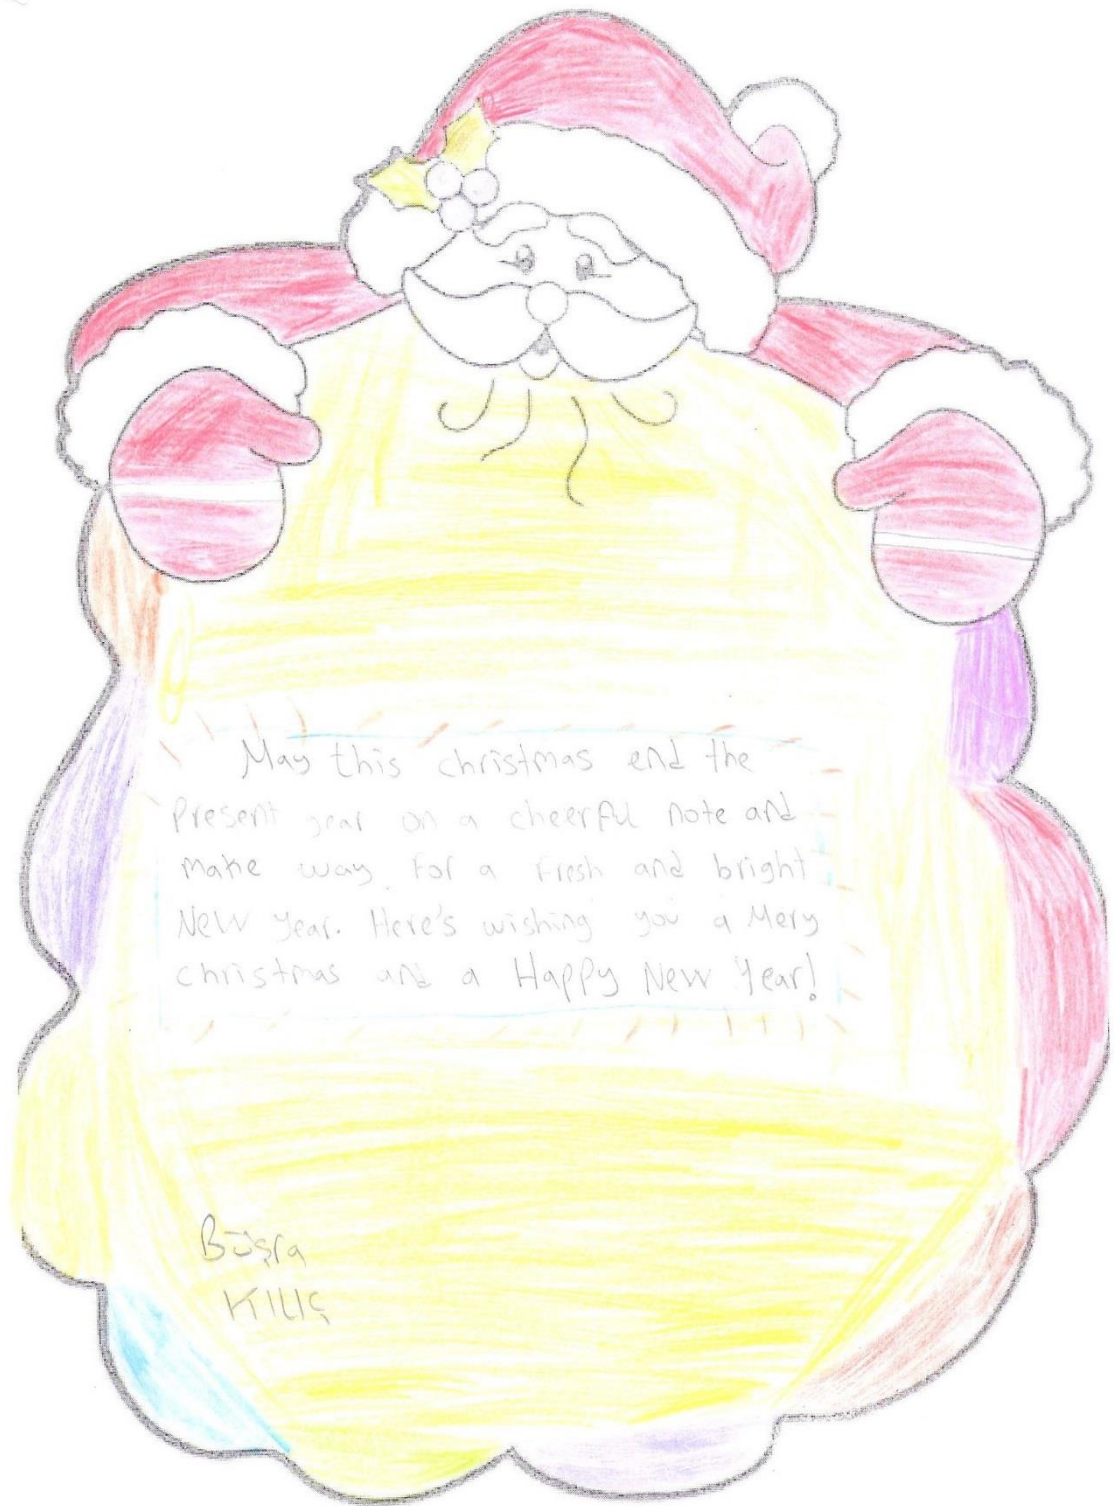 May this christmas end the
Present year on a cheerful note and
make way for a fresh and bright
New Year. Here's wishing you a Mery
christmas and a Happy New Year!
Büşra
KILIÇ